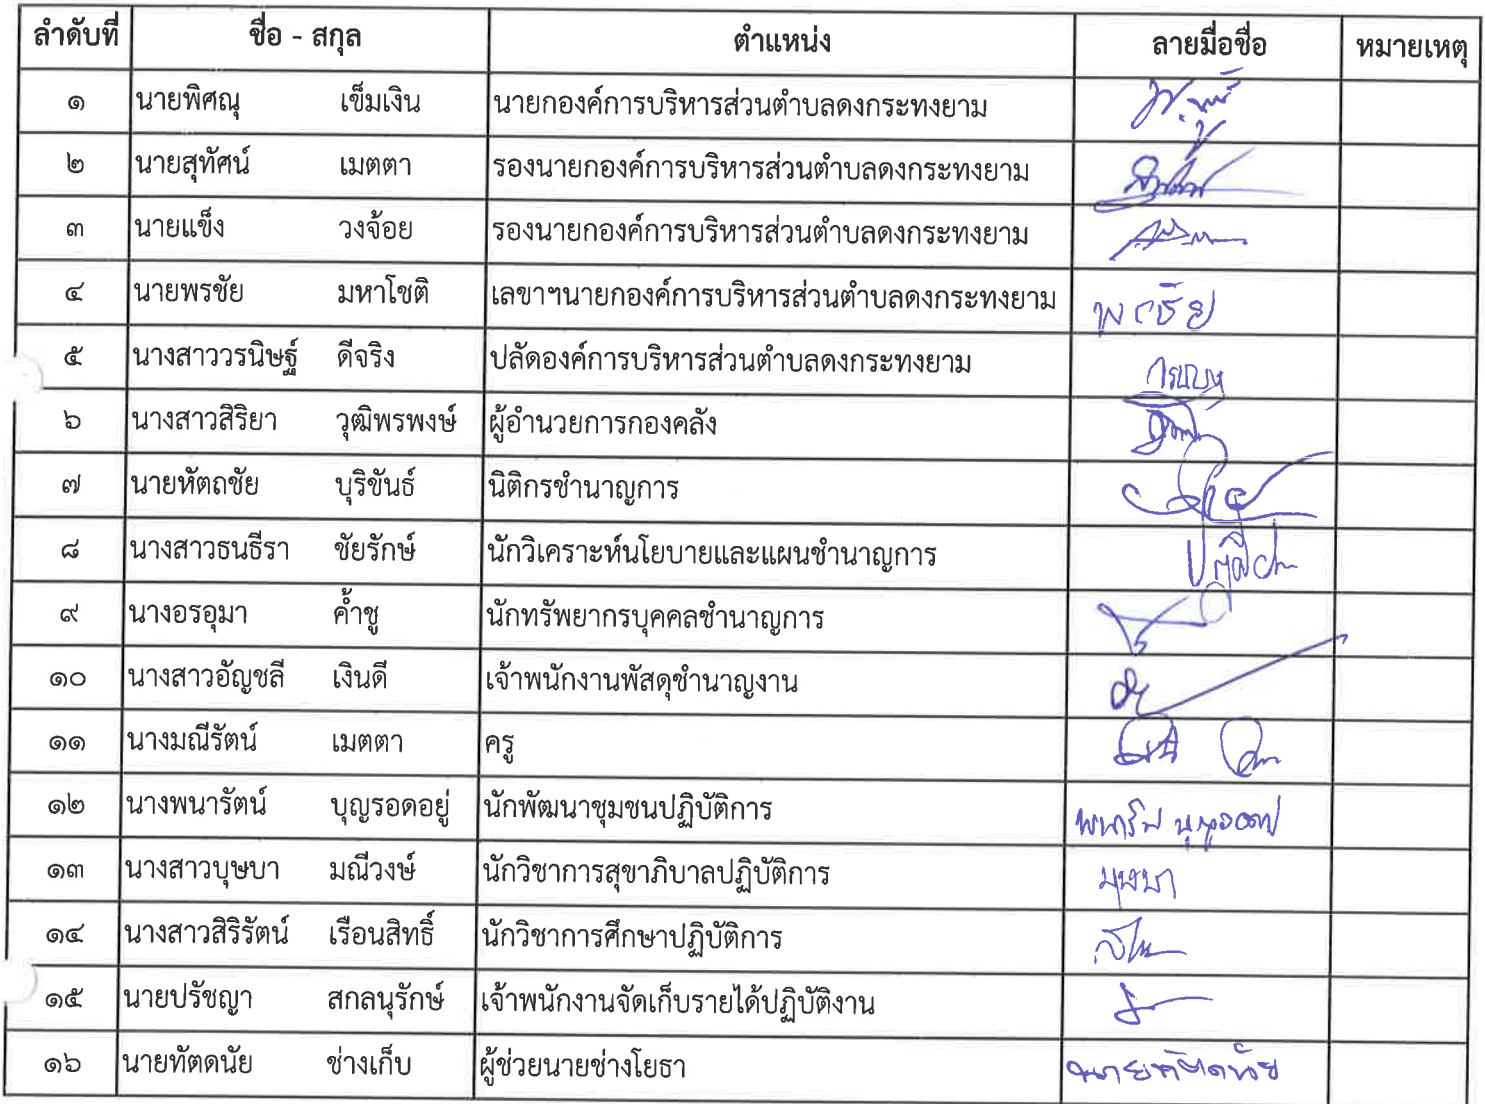 ลำดับที่ ชื่อ - สกุล ตำแหน่ง ลายมือชื่อ หมายเหตุ
๑ นายพิศณุ เข็มเงิน นายกองค์การบริหารส่วนตำบลดงกระทงยาม
๒ นายสุทัศน์ เมตตา รองนายกองค์การบริหารส่วนตำบลดงกระทงยาม
๓ นายแข็ง วงจ้อย รองนายกองค์การบริหารส่วนตำบลดงกระทงยาม
๔ นายพรชัย มหาโชติ เลขาฯนายกองค์การบริหารส่วนตำบลดงกระทงยาม พรชัย
๕ นางสาววรนิษฐ์ ดีจริง ปลัดองค์การบริหารส่วนตำบลดงกระทงยาม
๖ นางสาวสิริยา วุฒิพรพงษ์ ผู้อำนวยการกองคลัง
๗ นายหัตถชัย บุริขันธ์ นิติกรชำนาญการ
๘ นางสาวธนธีรา ชัยรักษ์ นักวิเคราะห์นโยบายและแผนชำนาญการ
๙ นางอรอุมา ค้ำชู นักทรัพยากรบุคคลชำนาญการ
๑๐ นางสาวอัญชลี เงินดี เจ้าพนักงานพัสดุชำนาญงาน
๑๑ นางมณีรัตน์ เมตตา ครู
๑๒ นางพนารัตน์ บุญรอดอยู่ นักพัฒนาชุมชนปฏิบัติการ
๑๓ นางสาวบุษบา มณีวงษ์ นักวิชาการสุขาภิบาลปฏิบัติการ บุษบา
๑๔ นางสาวสิริรัตน์ เรือนสิทธิ์ นักวิชาการศึกษาปฏิบัติการ
๑๕ นายปรัชญา สกลนุรักษ์ เจ้าพนักงานจัดเก็บรายได้ปฏิบัติงาน
๑๖ นายทัตดนัย ช่างเก็บ ผู้ช่วยนายช่างโยธา นายทัตดนัย